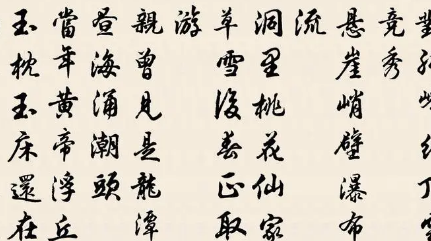 竞秀
悬崖峭壁瀑布
流
洞里桃花仙家
草雪後春正取
游
親曾見是龍潭
昼海涌潮頭
當年黃帝浮丘
玉枕玉床還在